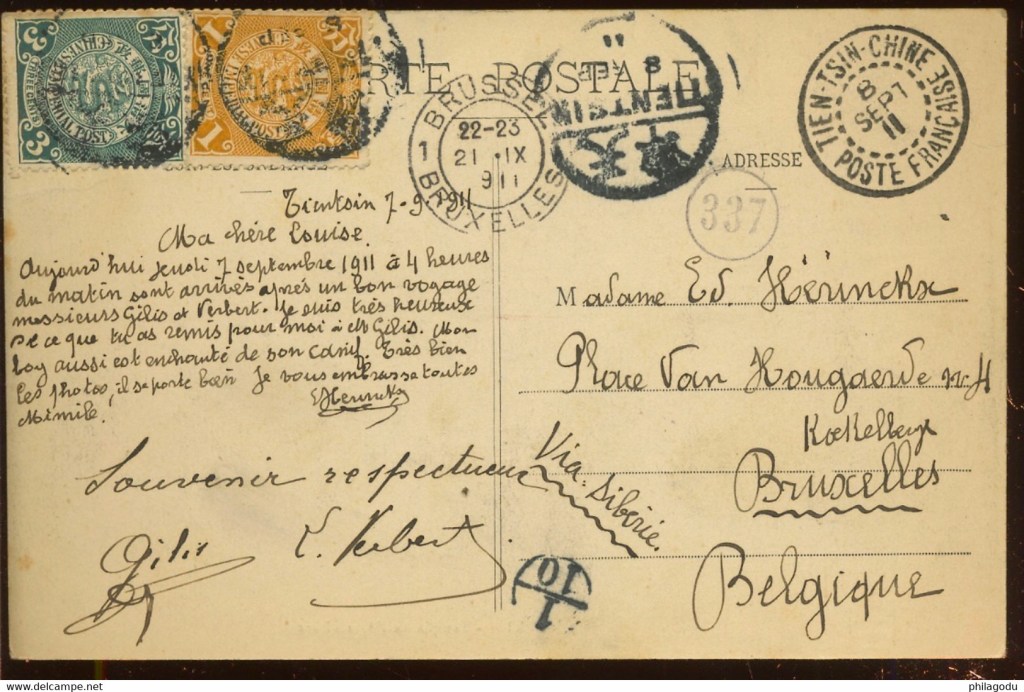 CARTE POSTALE
CORRESPONDANCE
ADRESSE
3
3
IMPERIAL POST
1
1
IMPERIAL POST
1 BRUSSEL
22-23
21 IX
911
BRUXELLES
8
11
TIENTSIN
TIEN-TSIN-CHINE
8
SEPT
11
POSTE FRANÇAISE
337
Tientsin 7-9-911
Ma chère Louise.
Aujourd'hui jeudi 7 septembre 1911 à 4 heures
du matin sont arrivés après un bon voyage
messieurs Gilis et Verbert. Je suis très heureuse
de ce que tu as remis pour moi à Mr Gilis. Mon
boy aussi est enchanté de son canif. Très bien
les photos, il se porte bien Je vous embrasse toutes
Mimile.
EHerinckx
Souvenir respectueux
Gilis
L. Verbert.
Madame Ed. Hérinckx
Place Van Hougaerde no 4
Koekelberg
Bruxelles
Via Sibérie.
Belgique
1
10
delcampe.net
philagodu